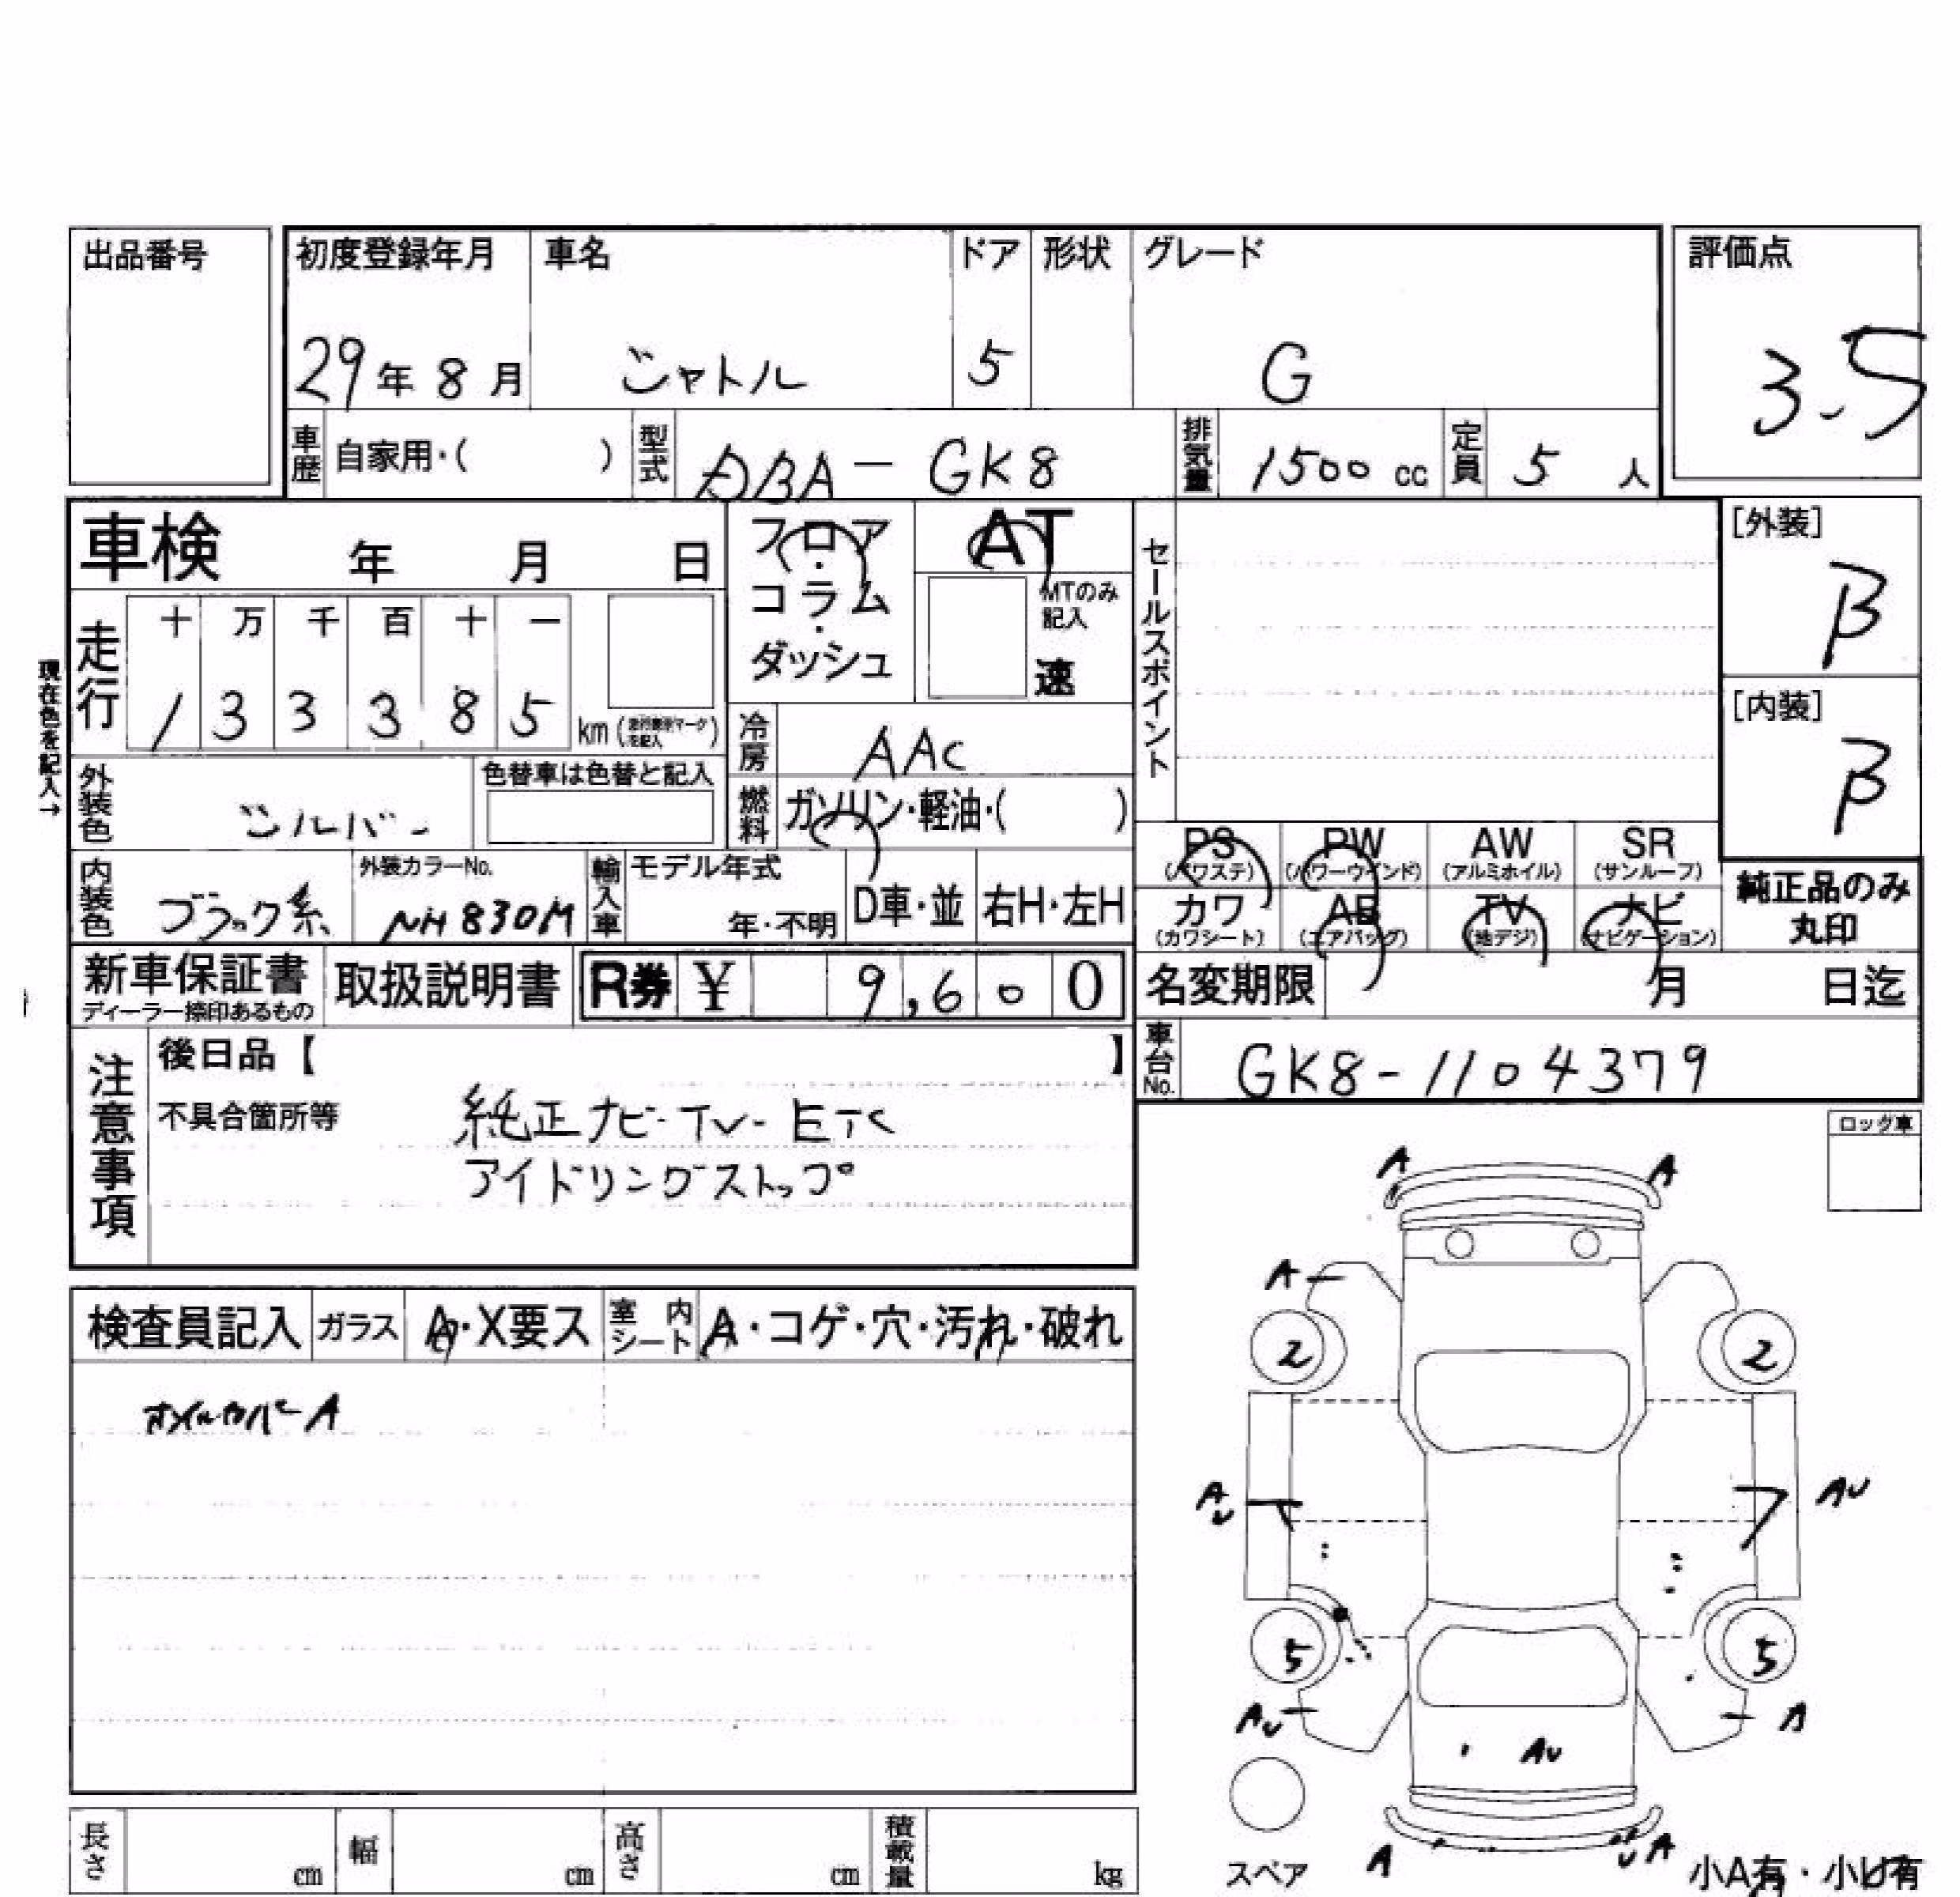 出品番号
初度登録年月 車名 ドア 形状 グレード 評価点
29年8月 シャトル 5 G 3.5
車歴 自家用・( ) 型式 DBA-GK8 排気量 1500cc 定員 5人
車検 年 月 日
フロア・コラム・ダッシュ
AT
MTのみ記入
速
セールスポイント
[外装]
B
[内装]
B
現在色を記入→
走行 十 万 千 百 十 一
1 3 3 3 8 5 km
冷房 AAC
外装色 シルバー
色替車は色替と記入
燃料 ガソリン・軽油・( )
PS (パワステ) PW (パワーウインド) AW (アルミホイル) SR (サンルーフ)
カワ (カワシート) AB (エアバッグ) TV (地デジ) ナビ (ナビゲーション)
純正品のみ丸印
内装色 ブラック系
外装カラーNo.
NH830M
輸入車 モデル年式
年・不明 D車・並 右H・左H
新車保証書
ディーラー捺印あるもの
取扱説明書
R券 ¥ 9,600
名変期限 月 日迄
車台No. GK8-1104379
注意事項
後日品【 】
不具合箇所等
純正ナビ-TV-ETC
アイドリングストップ
ロック車
検査員記入 ガラス A・X要ス 室内シート A・コゲ・穴・汚れ・破れ
オイルカバーA
A A
A
2 2
AU AU
5 5
AU A
AU
A UA
スペア
小A有・小U有
長さ cm 幅 cm 高さ cm 積載量 kg